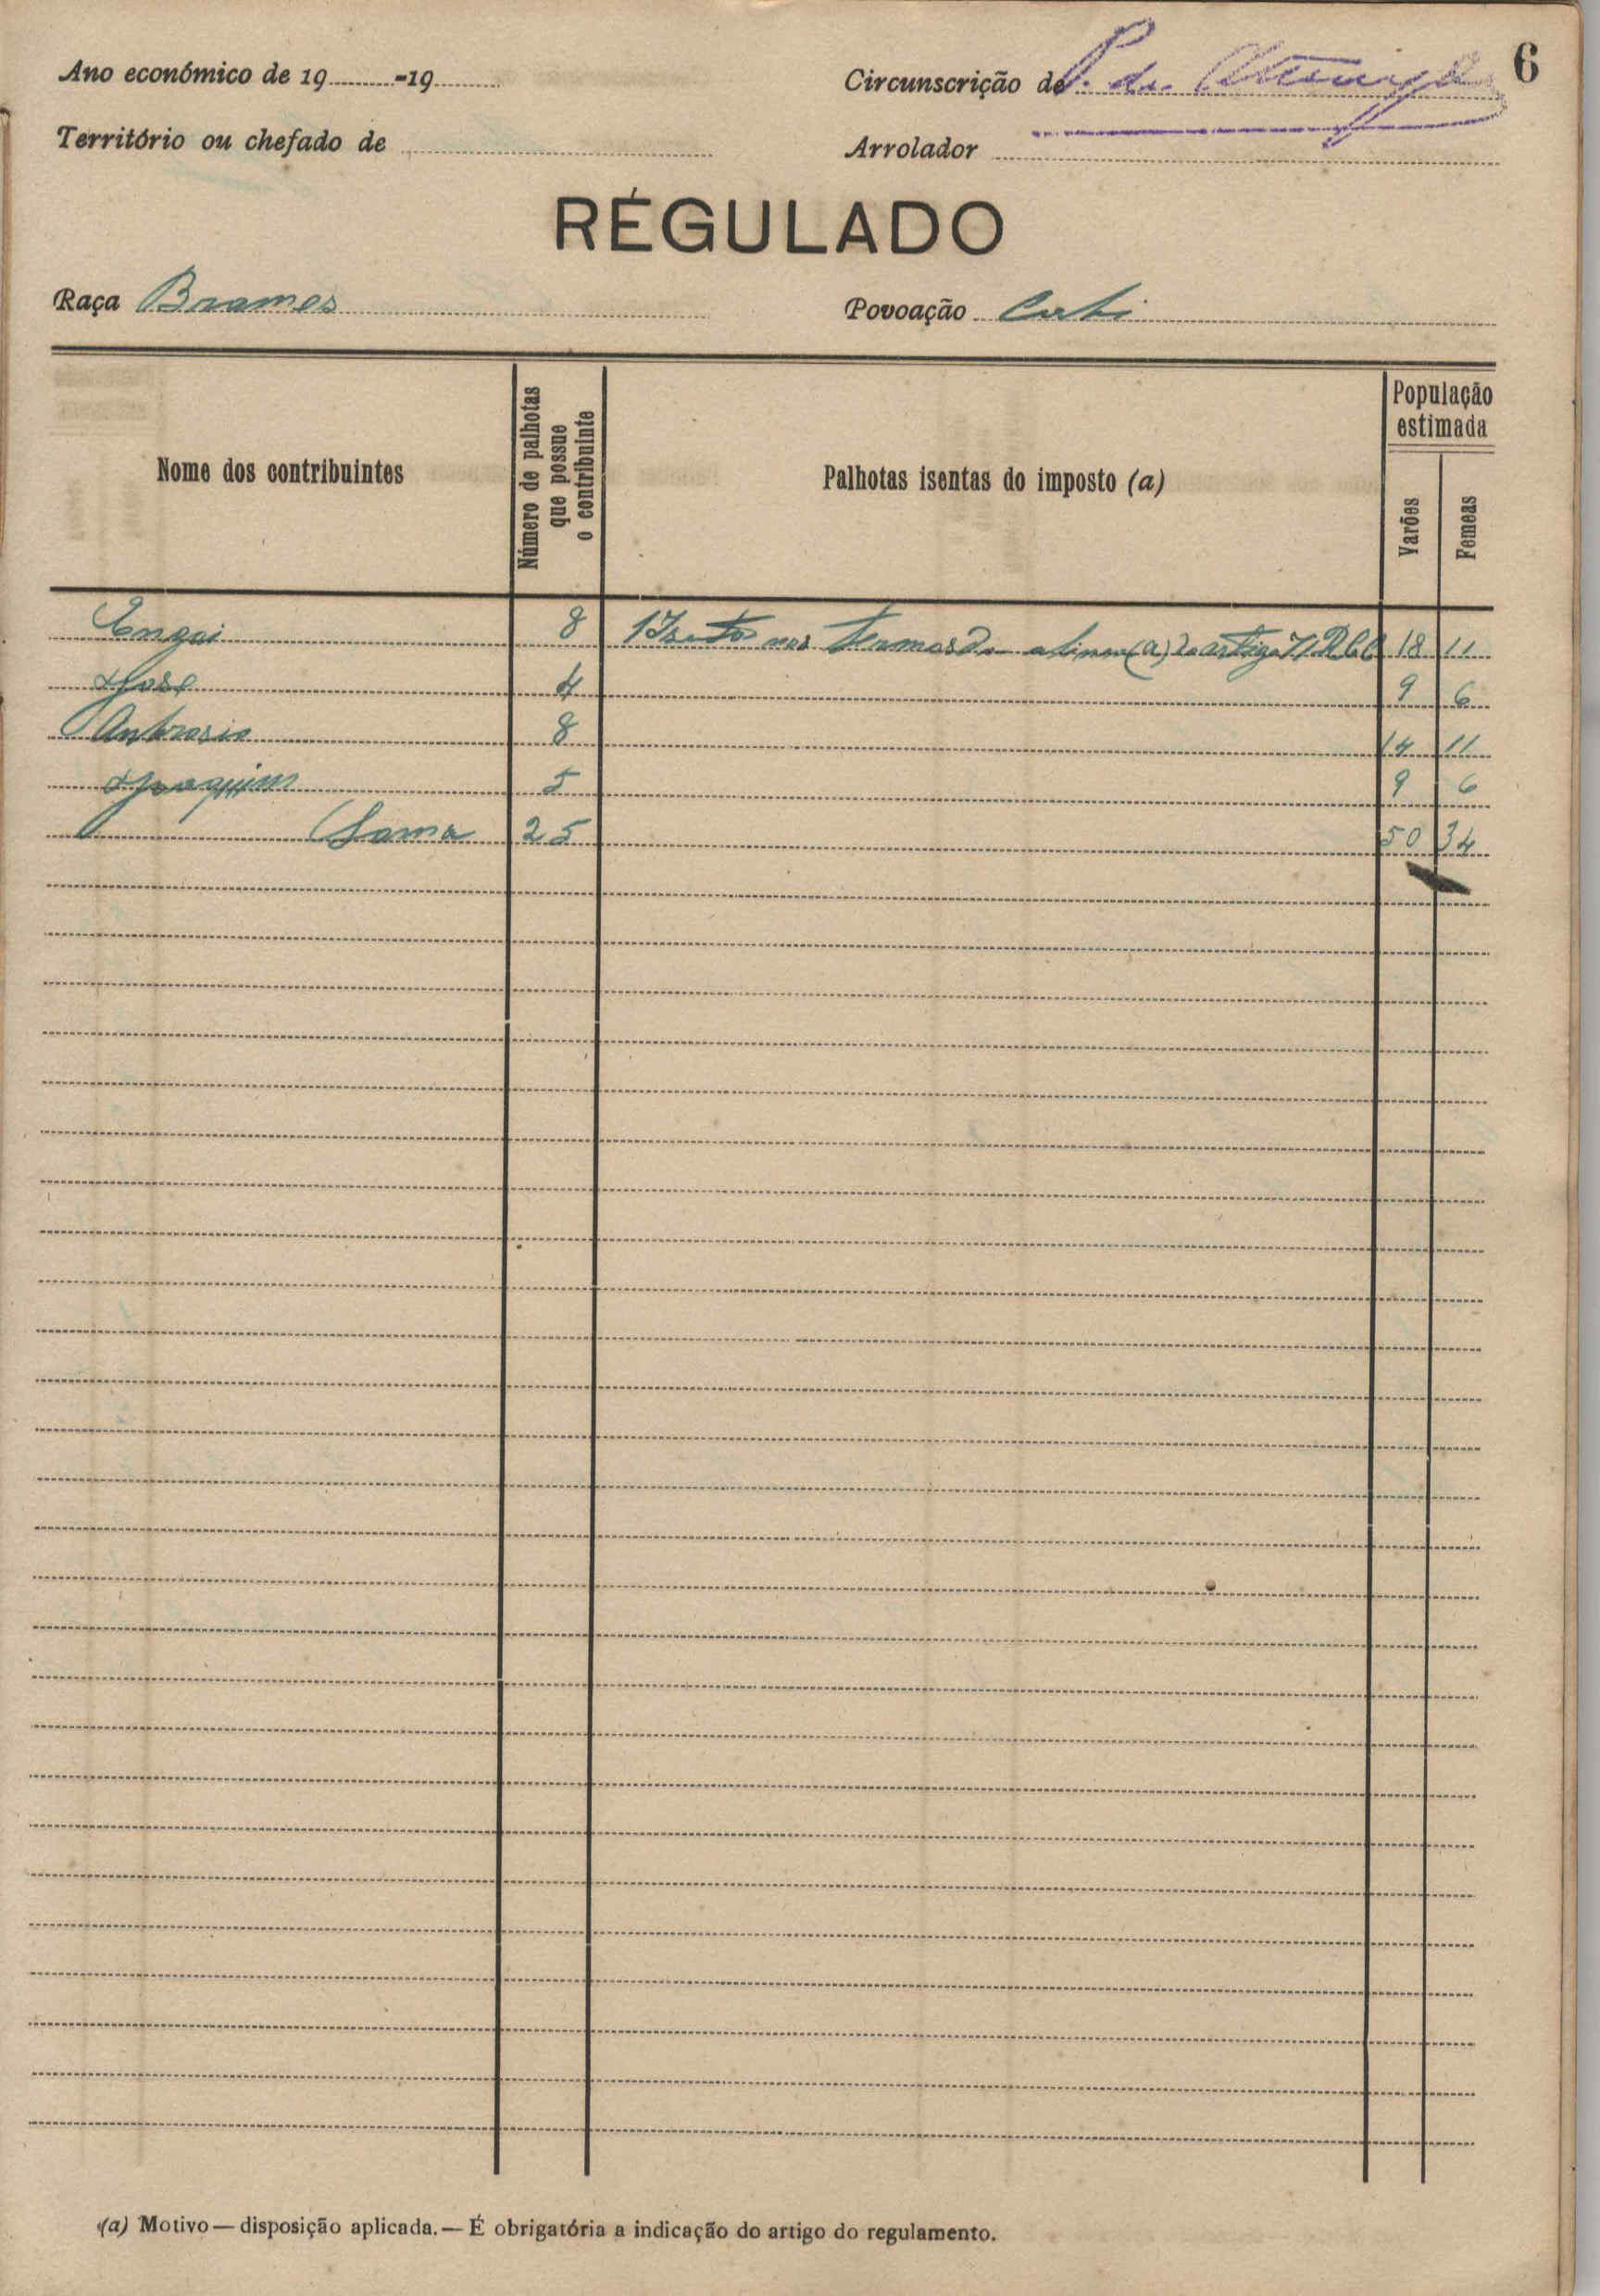 6
Ano económico de 19........-19........
Circunscrição de
Território ou chefado de
Arrolador
RÉGULADO
Raça Brames
Povoação
Nome dos contribuintes
Número de palhotas que possue o contribuinte
Palhotas isentas do imposto (a)
População estimada
Varões
Femeas
8 1 Isento nos termos da alinea (a) do artigo 18 11
José 4 9 6
Anbrosio 8 14 11
Joaquim 5 9 6
Soma 25 50 34
(a) Motivo — disposição aplicada. — É obrigatória a indicação do artigo do regulamento.